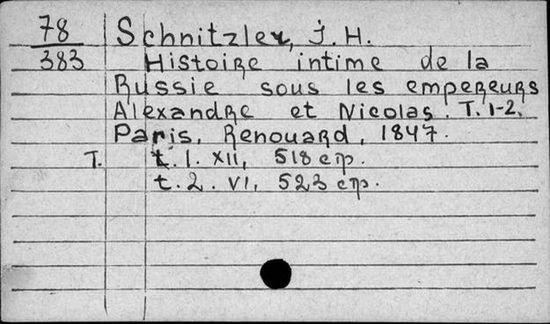 78 Schnitzler, J. H.
383 Histoire intime de la
Russie sous les empereurs
Alexandre et Nicolas. T. 1-2.
Paris, Renouard, 1847.
T. t. 1. XII, 518 стр.
t. 2. VI, 523 стр.